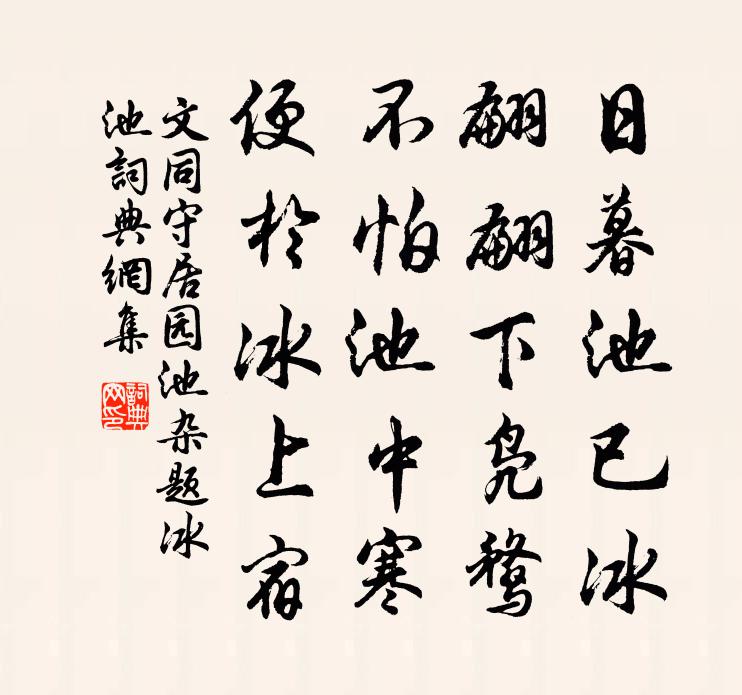 日暮池已冰
翩翩下凫鹜
不怕池中寒
便於冰上宿
文同守居园池杂题冰
池詞典網集
詞典网印